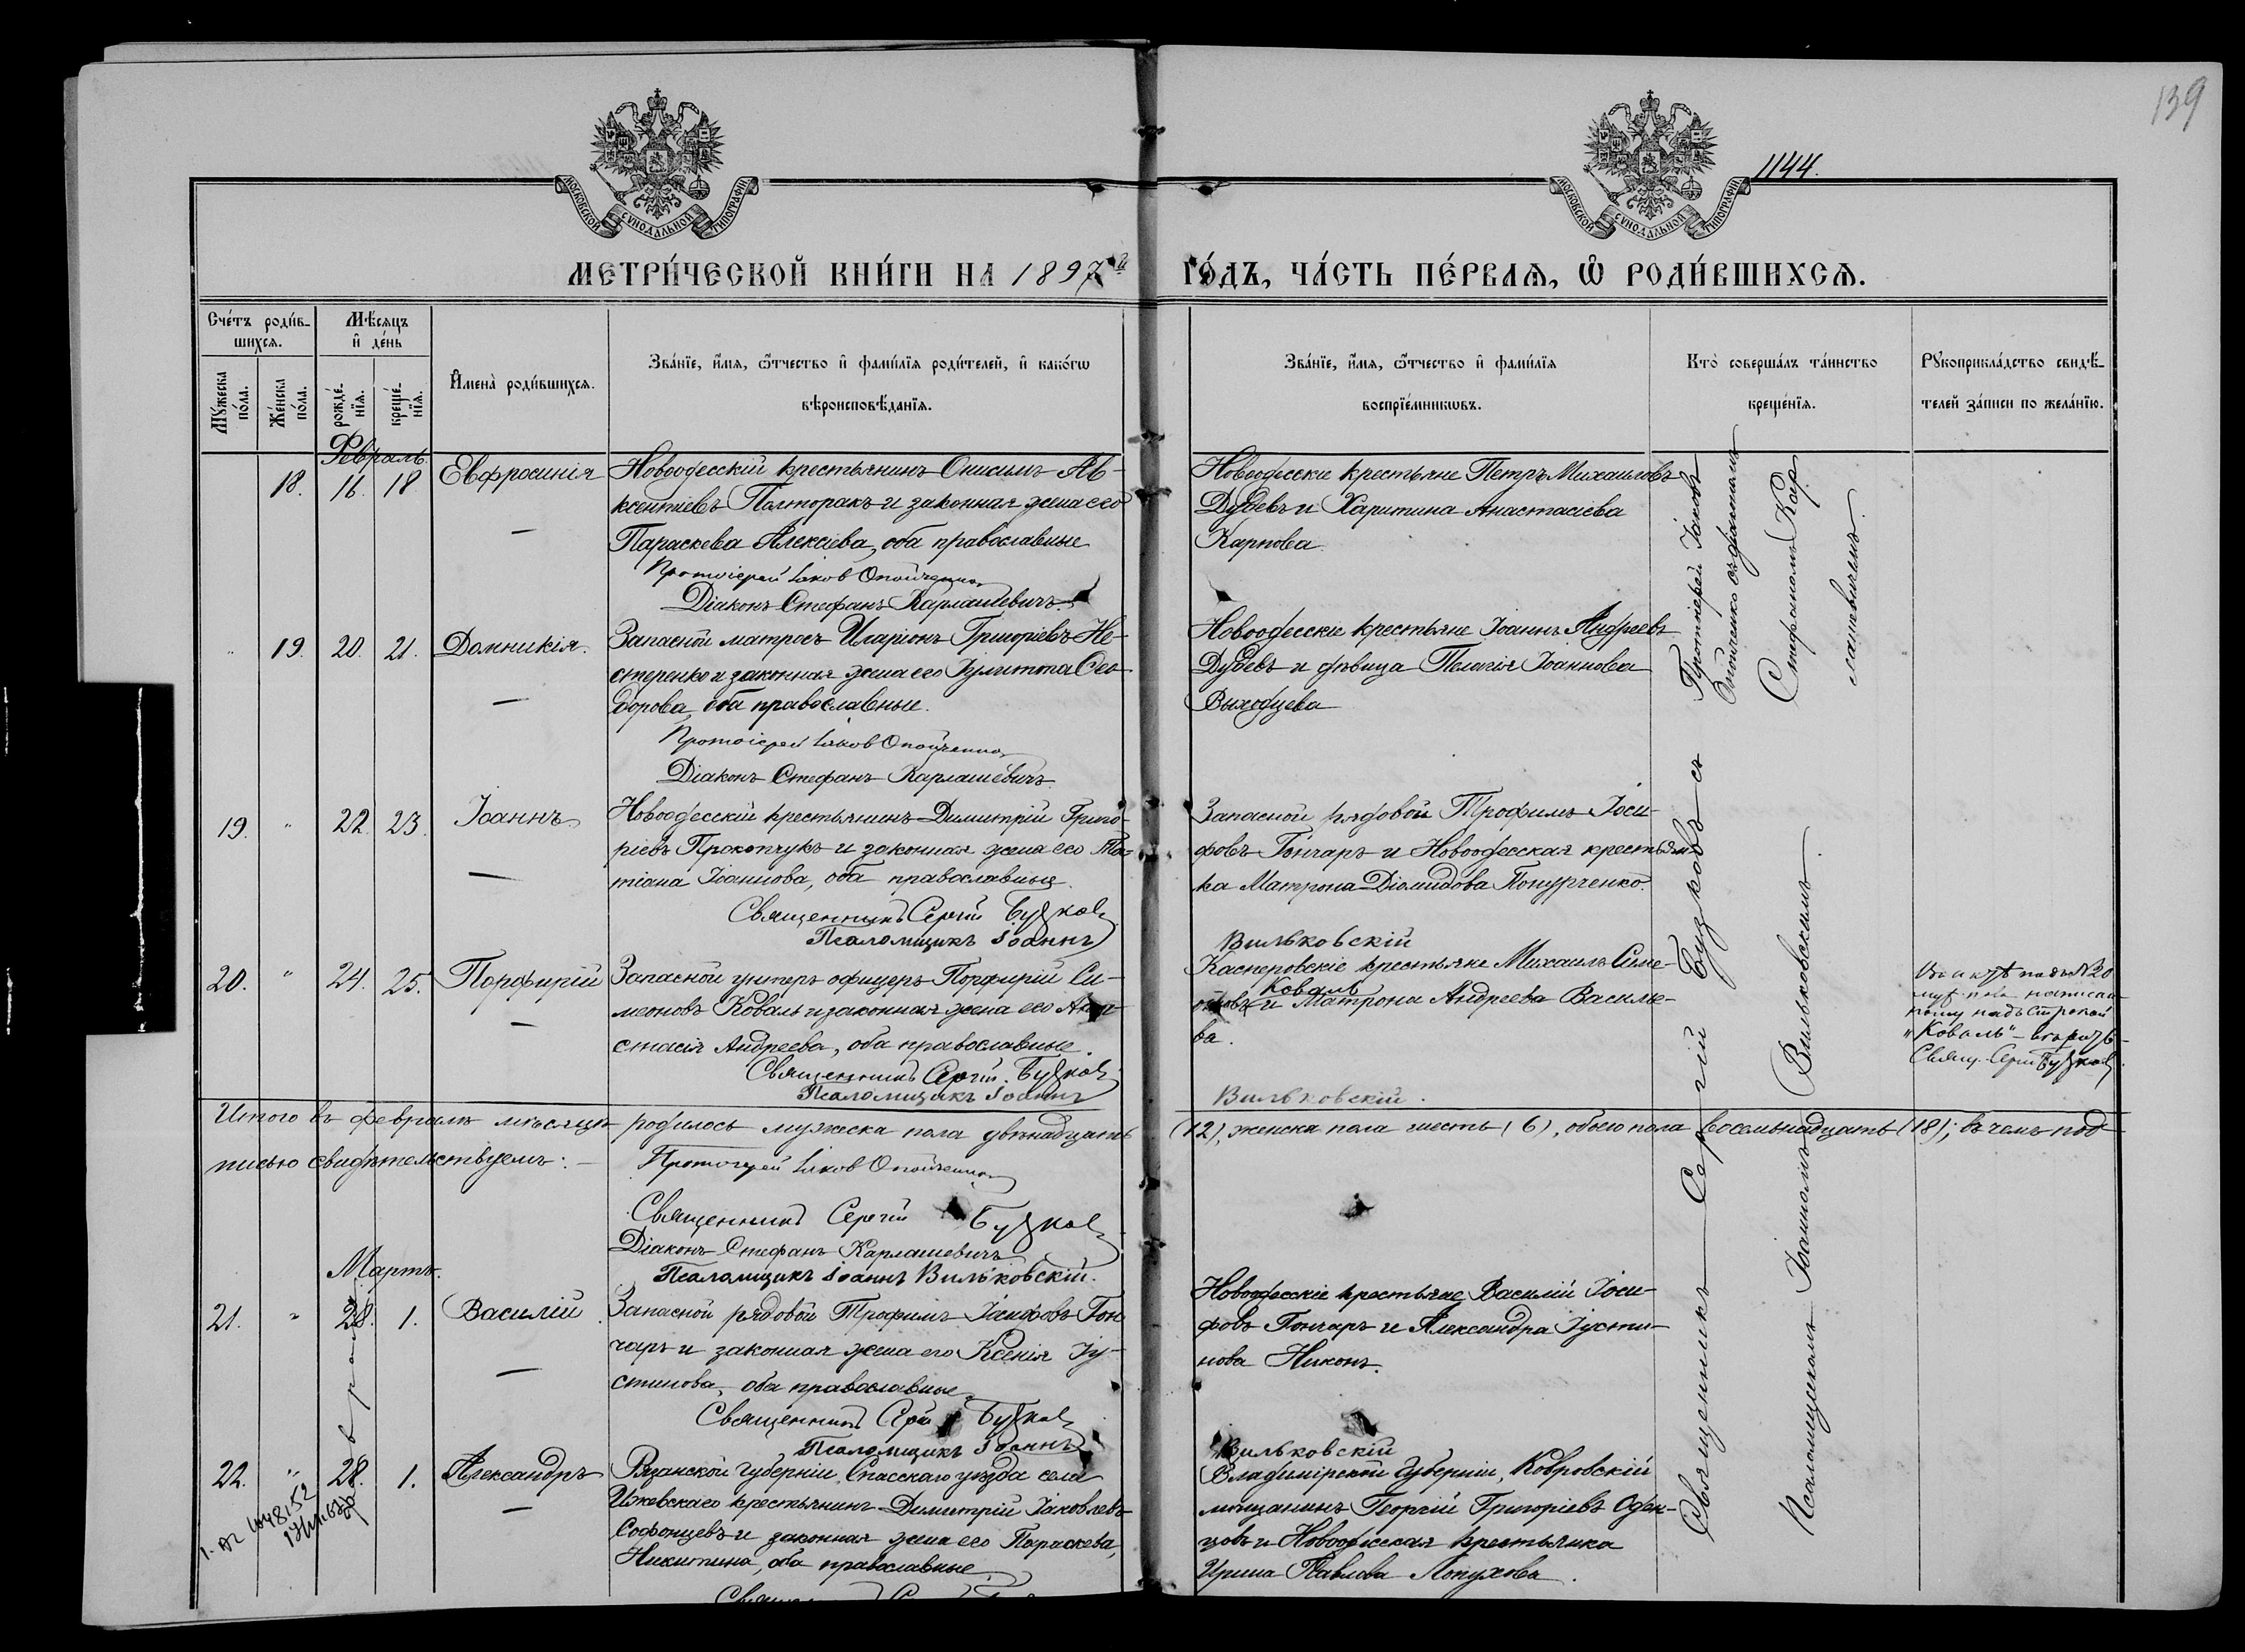 139
1144.
МОСКОВСКОЙ СѴНОДАЛЬНОЙ ТИПОГРАФІИ
МОСКОВСКОЙ СѴНОДАЛЬНОЙ ТИПОГРАФІИ
МЕТРИ́ЧЕСКОЙ КНИ́ГИ НА 1897 й ГО́ДЪ, ЧА́СТЬ ПЕ́РВАѦ, Ѿ РОДИ́ВШИХСѦ.
Сче́тъ роди́в-
шихсѧ.
Мꙋ́жеска
по́ла.
Же́нска
по́ла.
Мѣ́сѧцъ
и҆ де́нь
рожде́-
нїѧ.
креще́-
нїѧ.
И҆мена̀ роди́вшихсѧ.
Зва́нїе, и҆́мѧ, ѻ҆́тчество и҆ фами́лїѧ роди́телей, и҆ како́гѡ
вѣроисповѣ́данїѧ.
Зва́нїе, и҆́мѧ, ѻ҆́тчество и҆ фами́лїѧ
воспрїе́мникѡвъ.
Кто̀ соверша́лъ та́инство
креще́нїѧ.
Рꙋкоприкла́дство свидѣ́-
телей за́писи по жела́нїю.
Февраль.
18. 16. 18 Евфросинія
Новоодесскій крестьянинъ Онисимъ Ав-
ксентіевъ Полторакъ и законная жена его
Параскева Алексіева, оба православные
Протоіерей Іаков Опойченко
Діаконъ Стефанъ Карлашевичъ.
Новоодесскіе крестьяне Петръ Михаиловъ
Дубовъ и Харитина Анастасіева
Карпова.
19. 20. 21. Домникія.
Запасной матросъ Иларіонъ Григоріевъ Не-
стеренко и законная жена его Іулитта Ѳео-
дорова, оба православные.
Протоіерей Іаков Опойченко
Діаконъ Стефанъ Карлашевичъ
Новоодесскіе крестьяне Іоаннъ Андреевъ
Дубовъ и дѣвица Пелагія Іоаннова
Выходцева
Протоіерей Іаковъ
Опойченко съ діакономъ
Стефаномъ Кар-
лашевичемъ.
19. " 22. 23. Іоаннъ
Новоодесскій крестьянинъ Димитрій Григо-
ріевъ Прокопчукъ и законная жена его Та-
тіана Іоаннова, оба православные.
Священникъ Сергій Бузков
Псаломщикъ Іоаннъ Вильковскій
Запасной рядовой Трофимъ Іоси-
фовъ Гончаръ и Новоодесская крестьян-
ка Матрона Діомидова Понурченко.
20. " 24. 25. Порфирій
Запасной унтеръ офицеръ Порфирій Си-
меоновъ Коваль и законная жена его Ана-
стасія Андреева, оба православные.
Священникъ Сергій Бузков
Псаломщикъ Іоаннъ Вильковскій.
Касперовскіе крестьяне Михаилъ Симе-
оновъ Коваль и Матрона Андреева Василье-
ва.
"Коваль" — вѣрить
Свящ. Сергій Бузков
Итого въ февралѣ мѣсяцѣ родилось мужеска пола двѣнадцать (12), женска пола шесть (6), обоего пола восемьнадцать (18); въ чемъ под-
писью свидѣтельствуемъ: —
Протоіерей Іаков Опойченко
Священникъ Сергій Бузков
Діаконъ Стефанъ Карлашевичъ
Псаломщикъ Іоаннъ Вильковскій.
Мартъ.
21. " 28. 1. Василій
февраля
Запасной рядовой Трофимъ Іосифовъ Гон-
чаръ и законная жена его Ксенія Іу-
стинова, оба православные
Священникъ Сергій Бузков
Псаломщикъ Іоаннъ Вильковскій
Новоодесскіе крестьяне Василій Іоси-
фовъ Гончаръ и Александра Іусти-
нова Никонъ.
22. " 28. 1. Александръ
Рязанской губерніи, Спасскаго уѣзда села
Ижевскаго крестьянинъ Димитрій Іаковлевъ
Софонцевъ и законная жена его Параскева
Никитина, оба православные
Владимірской губерніи, Ковровскій
мѣщанинъ Георгій Григоріевъ Оден-
цовъ и Новоодесская крестьянка
Ирина Павлова Лопухова.
Священникъ Сергій Бузковъ съ
Псаломщикомъ Іоанномъ Вильковскимъ.